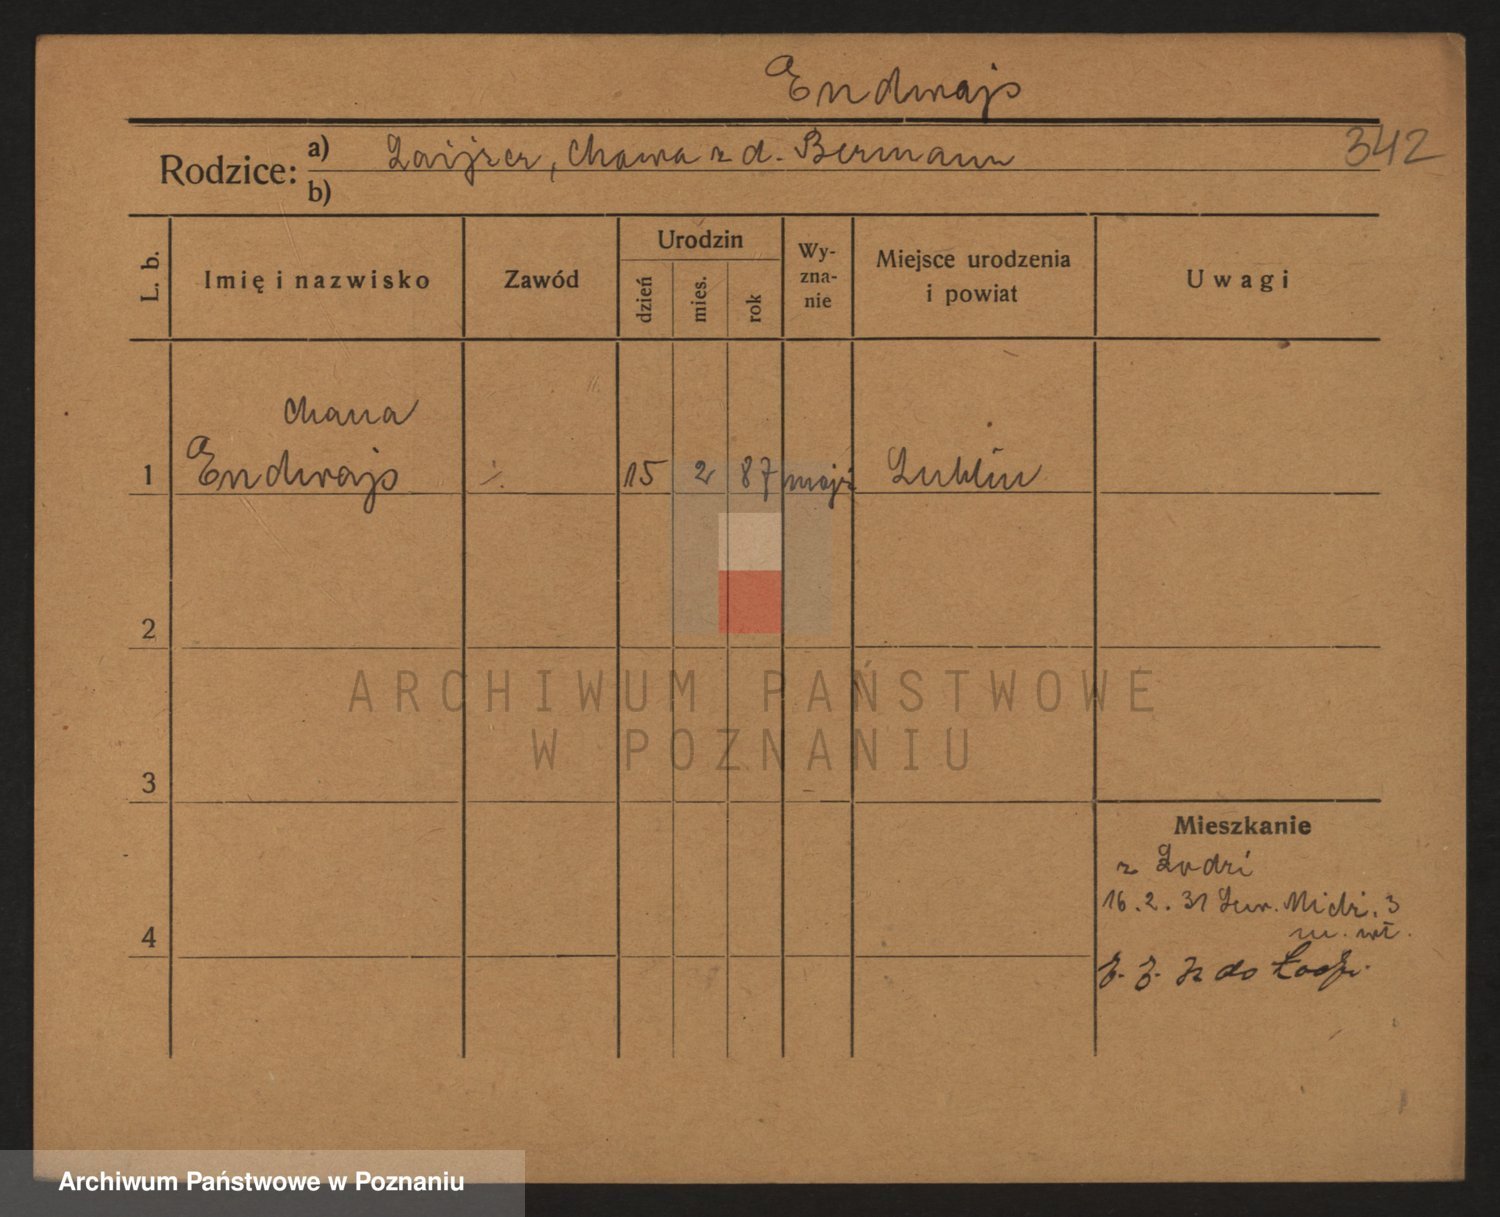 Endwajs
342
Rodzice: a) Laijzer, Chawa z d. Bermann
b)
L. b. Imię i nazwisko Zawód Urodzin dzień mies. rok Wy-zna-nie Miejsce urodzenia i powiat Uwagi
Chana
1 Endwajs ./. 15 2 87 mojż Lublin
2
3
Mieszkanie
z Lodzi
16.2.31 3
m. wł.
4
do Łodzi
ARCHIWUM PAŃSTWOWE
W POZNANIU
Archiwum Państwowe w Poznaniu